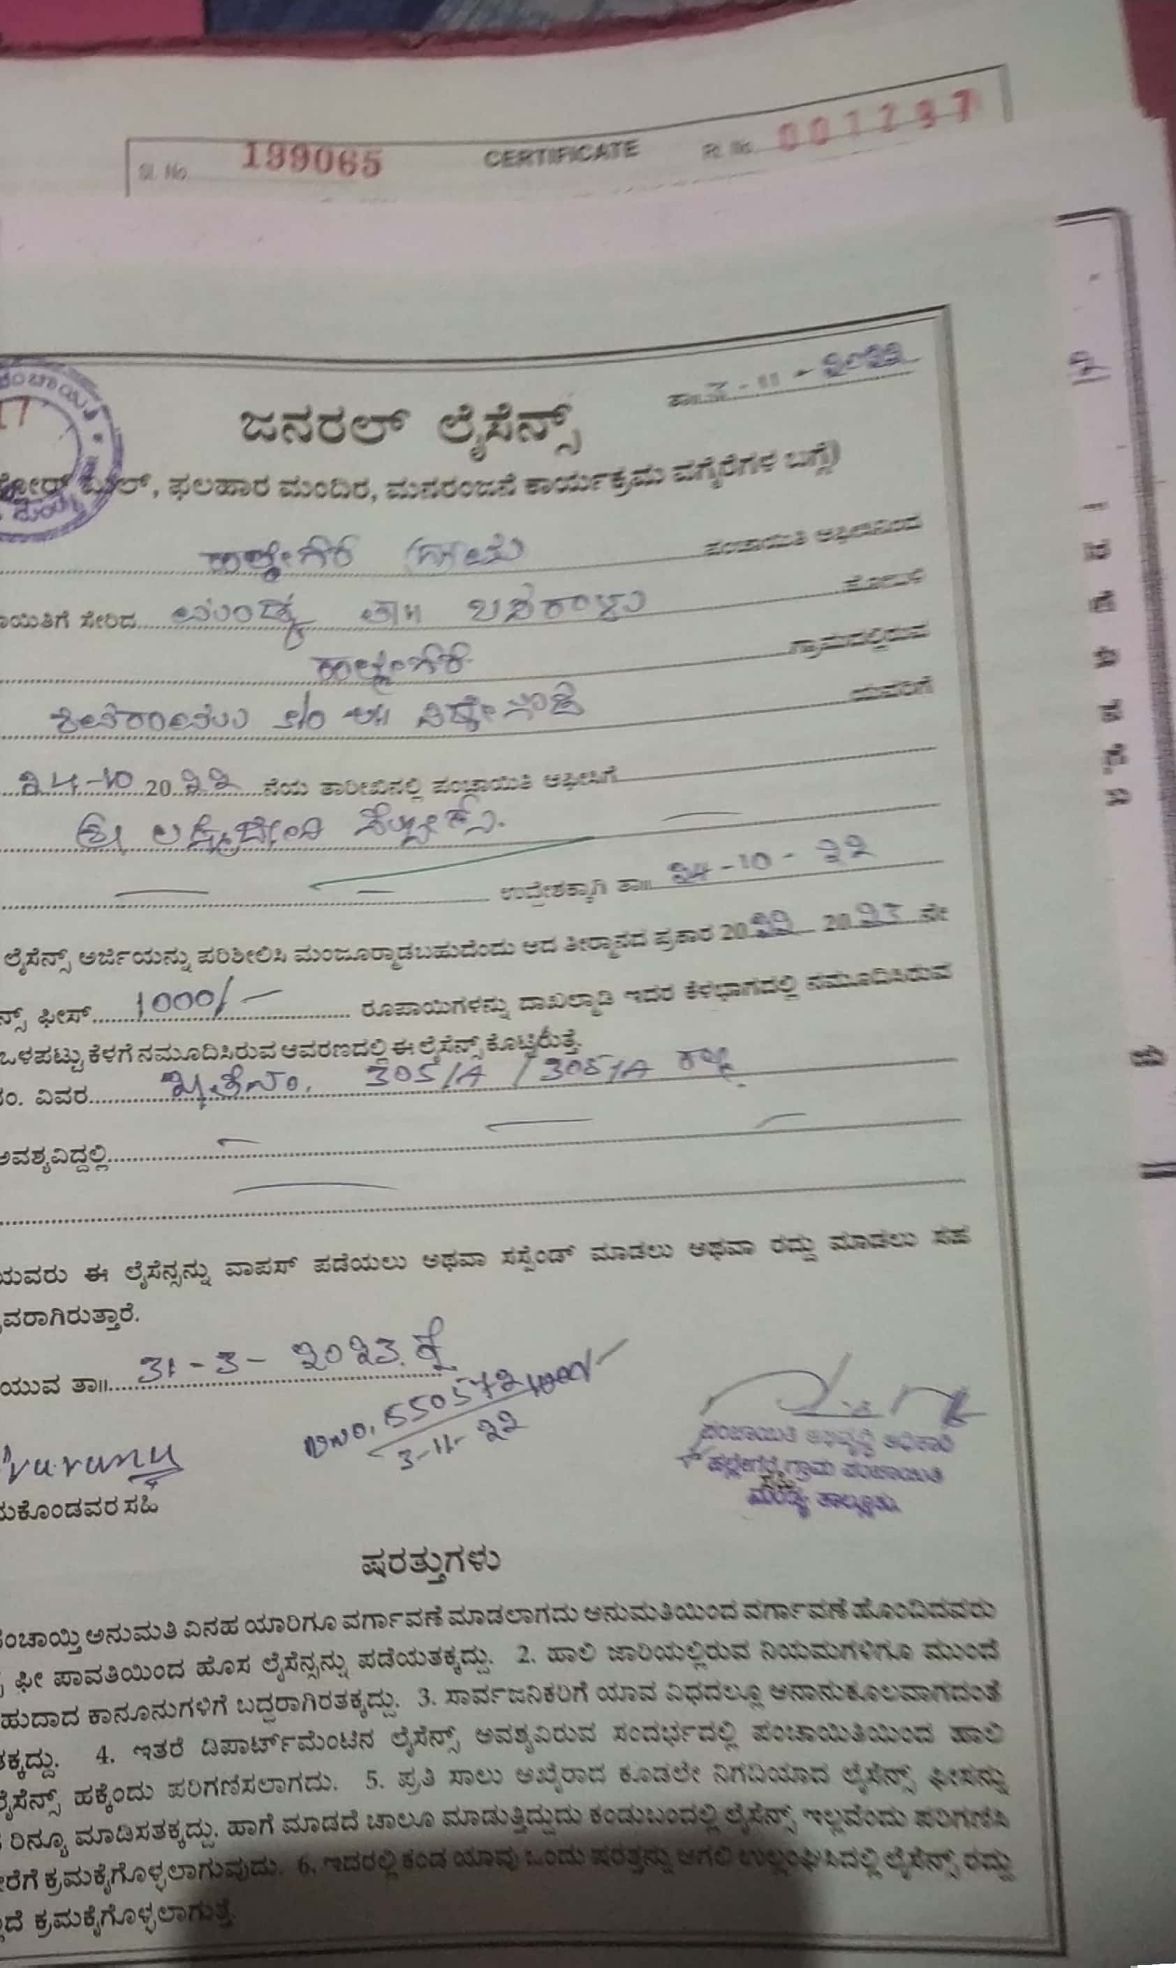 Sl. No. 199065 CERTIFICATE R. No. 001297
ಪಂಚಾಯಿತಿ
17
ತಾ॥ 3-11-೨೦೨೨
ಜನರಲ್ ಲೈಸೆನ್ಸ್
ಓಟಲ್, ಫಲಹಾರ ಮಂದಿರ, ಮನರಂಜನೆ ಕಾರ್ಯಕ್ರಮ ವಗೈರೆಗಳ ಬಗ್ಗೆ)
ಪಂಚಾಯಿತಿ ಆಫೀಸಿನಿಂದ
ಸೇರಿದ ಮಂಡ್ಯ ತಾ॥ ಬಸರಾಳು ಹೋಬಳಿ
ಗ್ರಾಮದಲ್ಲಿರುವ
S/o ಯವರಿಗೆ
೨4-10 20 ೨೨ ನೆಯ ತಾರೀಖಿನಲ್ಲಿ ಪಂಚಾಯಿತಿ ಆಫೀಸಿಗೆ
ಶ್ರೀ ಲಕ್ಷ್ಮೀದೇವಿ
ಉದ್ದೇಶಕ್ಕಾಗಿ ತಾ॥ ೨4-10-೨೨
ಲೈಸೆನ್ಸ್ ಅರ್ಜಿಯನ್ನು ಪರಿಶೀಲಿಸಿ ಮಂಜೂರ್ಮಾಡಬಹುದೆಂದು ಆದ ತೀರ್ಮಾನದ ಪ್ರಕಾರ 20೨೨ 20೨3 ನೇ
ಫೀಸ್ 1000/- ರೂಪಾಯಿಗಳನ್ನು ದಾಖಲ್ಮಾಡಿ ಇದರ ಕೆಳಭಾಗದಲ್ಲಿ ನಮೂದಿಸಿರುವ
ಒಳಪಟ್ಟು ಕೆಳಗೆ ನಮೂದಿಸಿರುವ ಆವರಣದಲ್ಲಿ ಈ ಲೈಸೆನ್ಸ್ ಕೊಟ್ಟಿರುತ್ತೆ.
ನಂ. ವಿವರ 305/A / 305/A
ಅವಶ್ಯವಿದ್ದಲ್ಲಿ
ಯವರು ಈ ಲೈಸೆನ್ಸನ್ನು ವಾಪಸ್ ಪಡೆಯಲು ಅಥವಾ ಸಸ್ಪೆಂಡ್ ಮಾಡಲು ಅಥವಾ ರದ್ದು ಮಾಡಲು ಸಹ
ವರಾಗಿರುತ್ತಾರೆ.
ಯುವ ತಾ॥ 31-3-೨೦೨3 ಕ್ಕೆ
3-11-೨೨
ಪಂಚಾಯಿತಿ ಅಭಿವೃದ್ಧಿ ಅಧಿಕಾರಿ
ಹಲ್ಲೇಗೆರೆ ಗ್ರಾಮ ಪಂಚಾಯಿತಿ
ಮಂಡ್ಯ ತಾಲ್ಲೂಕು.
ಕೊಂಡವರ ಸಹಿ
ಷರತ್ತುಗಳು
ಪಂಚಾಯ್ತಿ ಅನುಮತಿ ವಿನಹ ಯಾರಿಗೂ ವರ್ಗಾವಣೆ ಮಾಡಲಾಗದು ಅನುಮತಿಯಿಂದ ವರ್ಗಾವಣೆ ಹೊಂದಿದವರು
ಫೀ ಪಾವತಿಯಿಂದ ಹೊಸ ಲೈಸೆನ್ಸನ್ನು ಪಡೆಯತಕ್ಕದ್ದು. 2. ಹಾಲಿ ಜಾರಿಯಲ್ಲಿರುವ ನಿಯಮಗಳಿಗೂ ಮುಂದೆ
ಬಹುದಾದ ಕಾನೂನುಗಳಿಗೆ ಬದ್ಧರಾಗಿರತಕ್ಕದ್ದು. 3. ಸಾರ್ವಜನಿಕರಿಗೆ ಯಾವ ವಿಧದಲ್ಲೂ ಅನಾನುಕೂಲವಾಗದಂತೆ
ತಕ್ಕದ್ದು. 4. ಇತರೆ ಡಿಪಾರ್ಟ್‌ಮೆಂಟಿನ ಲೈಸೆನ್ಸ್ ಅವಶ್ಯವಿರುವ ಸಂದರ್ಭದಲ್ಲಿ ಪಂಚಾಯಿತಿಯಿಂದ ಹಾಲಿ
ಲೈಸೆನ್ಸ್ ಹಕ್ಕೆಂದು ಪರಿಗಣಿಸಲಾಗದು. 5. ಪ್ರತಿ ಸಾಲು ಅಖೈರಾದ ಕೂಡಲೇ ನಿಗದಿಯಾದ ಲೈಸೆನ್ಸ್ ಫೀಸನ್ನು
ರಿನ್ಯೂ ಮಾಡಿಸತಕ್ಕದ್ದು. ಹಾಗೆ ಮಾಡದೆ ಚಾಲೂ ಮಾಡುತ್ತಿದ್ದುದು ಕಂಡುಬಂದಲ್ಲಿ ಲೈಸೆನ್ಸ್ ಇಲ್ಲವೆಂದು ಪರಿಗಣಿಸಿ
ಕ್ರಮಕೈಗೊಳ್ಳಲಾಗುವುದು. 6. ಇದರಲ್ಲಿ ಕಂಡ ಯಾವು ಒಂದು ಷರತ್ತನ್ನು ಆಗಲಿ ಉಲ್ಲಂಘಿಸಿದಲ್ಲಿ ಲೈಸೆನ್ಸ್ ರದ್ದು
ಕ್ರಮಕೈಗೊಳ್ಳಲಾಗುತ್ತೆ.